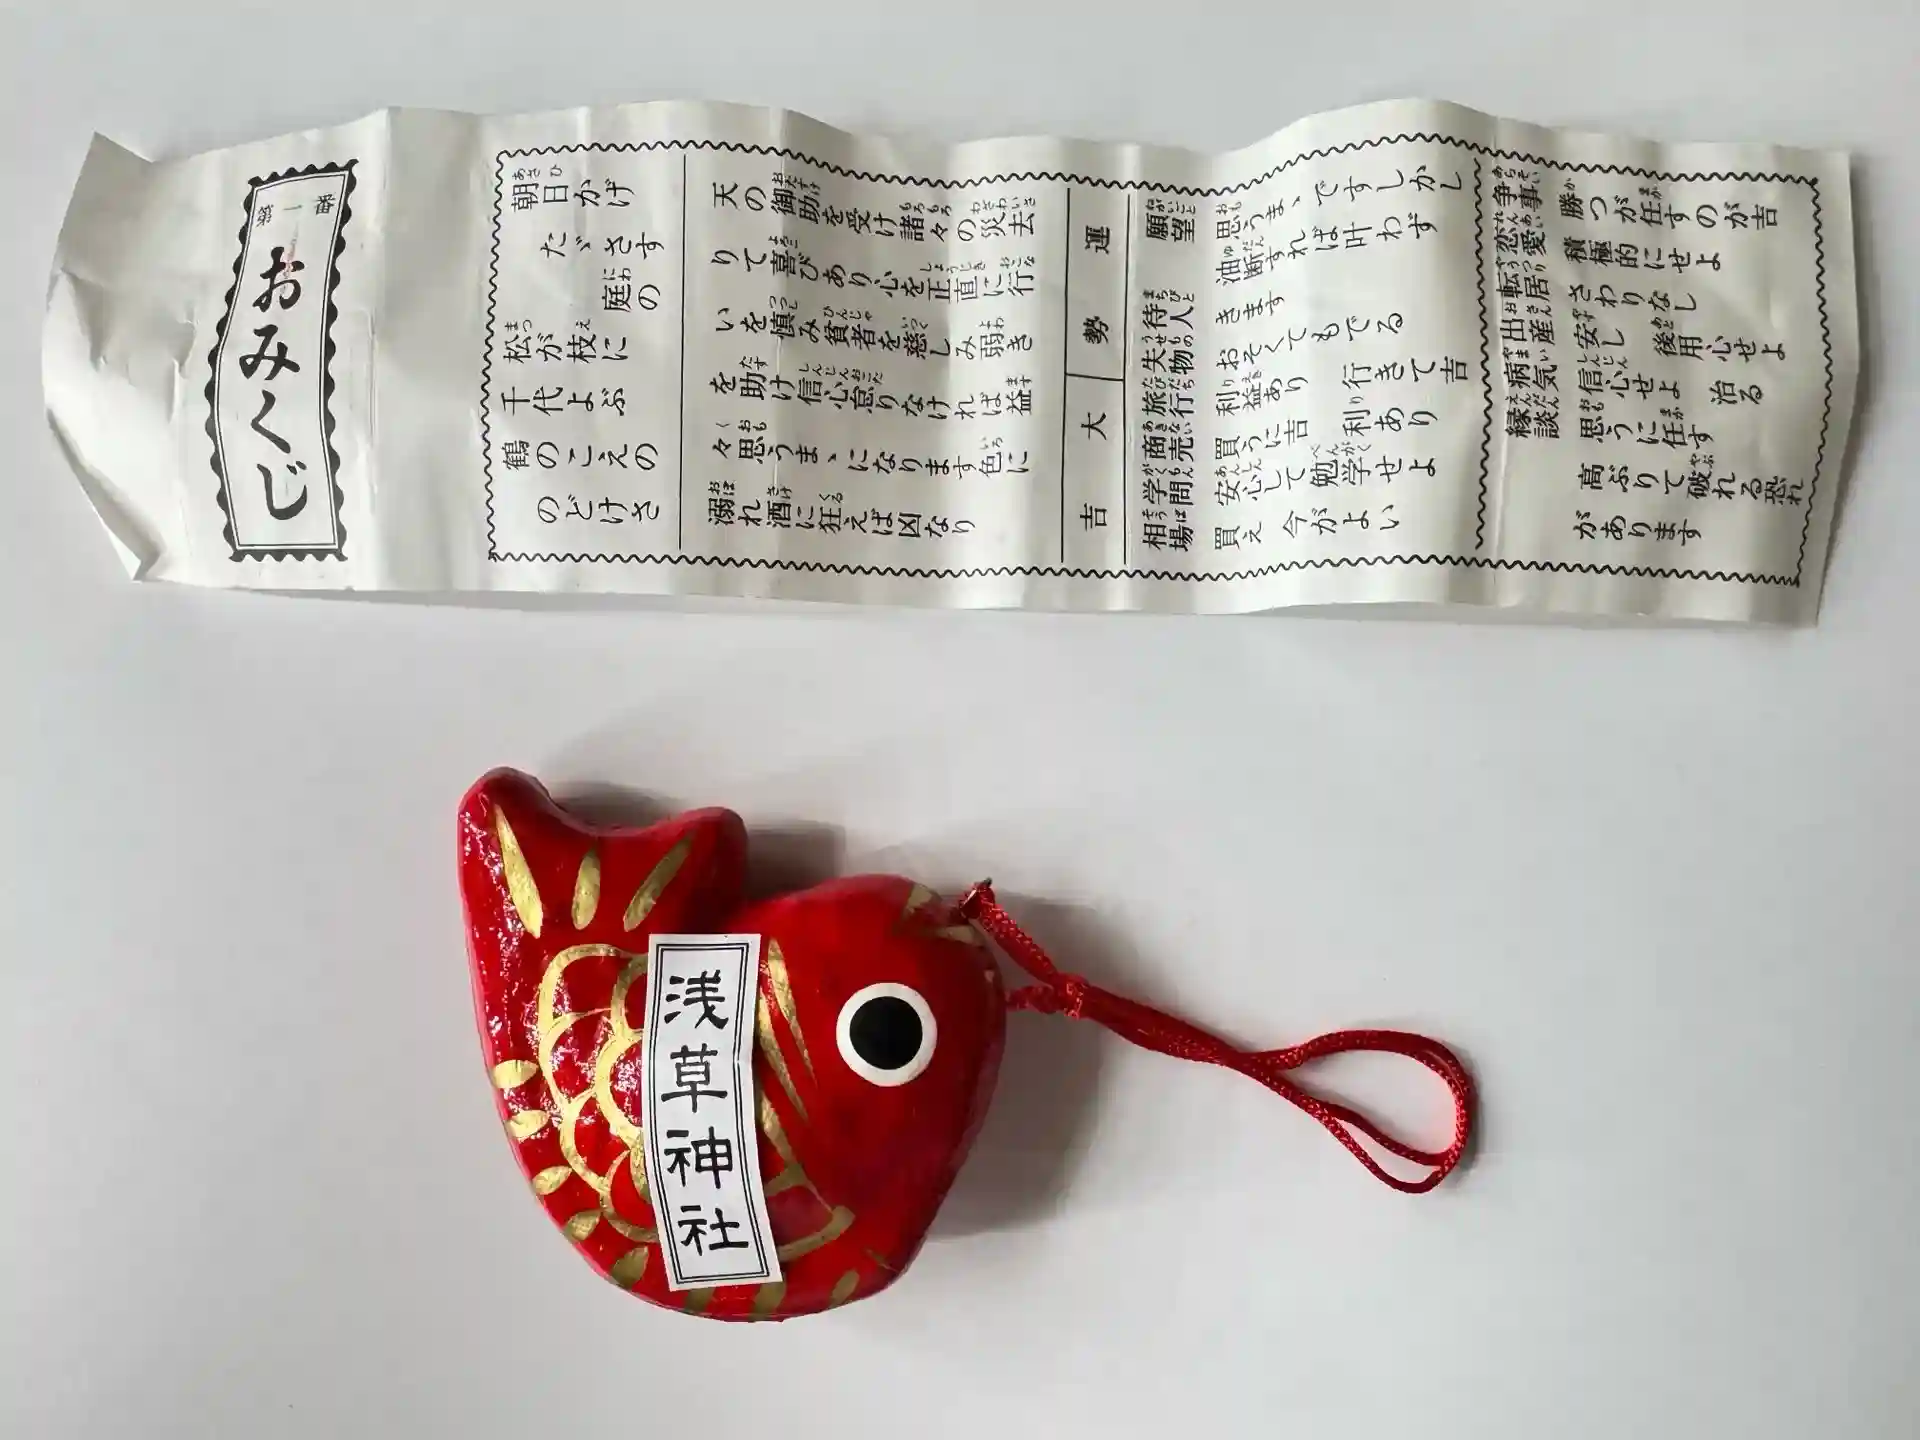 第一番
おみくじ
朝日かげ
たゞさす
庭の
松が枝に
千代よぶ
鶴のこえの
のどけさ
天の御助を受け諸々の災去
りて喜びあり心を正直に行
いを慎み貧者を慈しみ弱き
を助け信心怠りなければ益
々思うまゝになります色に
溺れ酒に狂えば凶なり
運勢
大吉
願望 思うまゝですしかし
油断すれば叶わず
待人 きます
失物 おそくてもでる
旅行 利益あり 行きて吉
商売 買うに吉 利あり
学問 安心して勉学せよ
相場 買え 今がよい
争事 勝つが任すのが吉
恋愛 積極的にせよ
転居 さわりなし
出産 安し 後用心せよ
病気 信心せよ 治る
縁談 思うに任す
高ぶりて破れる恐れ
があります
浅草神社